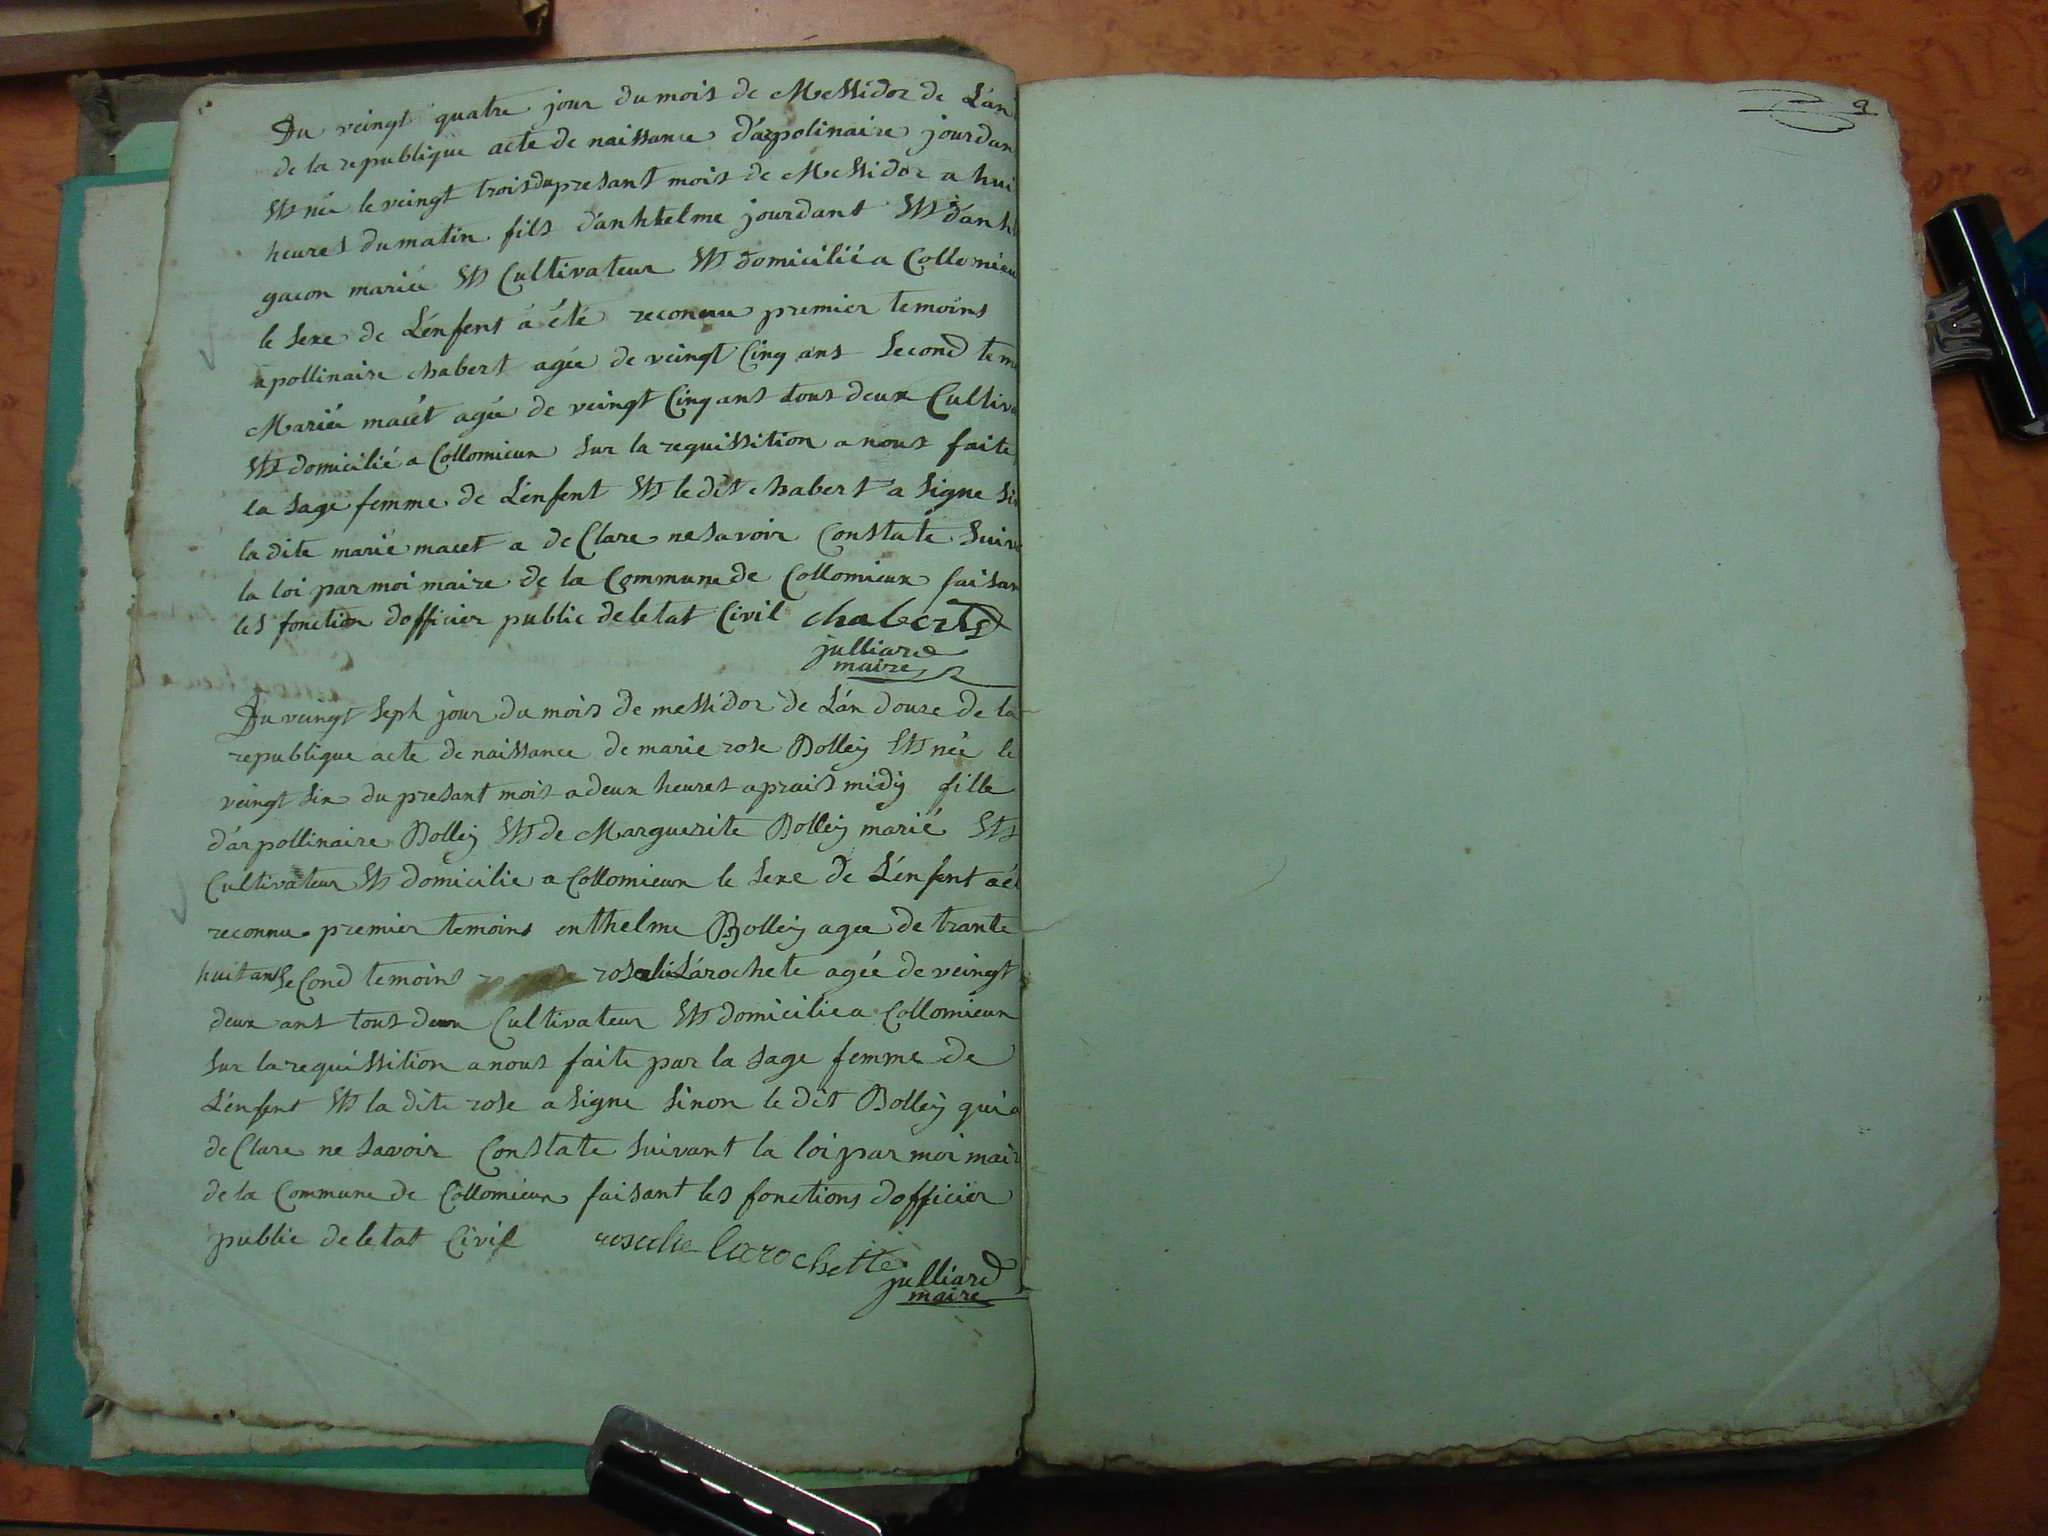 9
Du veingt quatre jour du mois de Messidor de L'an
de la republique acte de naissance d'appolinaire jourdan
Et née le veingt trois du presant mois de Messidor a hui
heures du matin fils d'anthelme jourdant Et d'anh
gacon mariée Et Cultivateur Et domicilié a Collomieu
le sexe de L'enfent a été reconnu premier temoins
apollinaire chabert agée de veingt Cinq ans second tem
Mariée macét agée de veingt Cinq ans tous deux Cultiva
Et domicilié a Collomieux sur la requissition a nous faite
la sage femme de L'enfent Et le dit chabert a signe si
la dite marié macet a de Clare ne savoir Constate suiv
la loi par moi maire de la Commune de Collomieux faisan
les fonction dofficier public de letat Civil chabert
julliard
maire
Du veingt sept jour du mois de messidor de L'an douze de la
republique acte de naissance de marie rose Bolley Et née le
veingt six du presant mois a deux heures aprais midy fille
d'arpollinaire Bolley Et de Marguerite Bolley marié Et
Cultivateur Et domicilie a Collomieux le sexe de L'enfent a é
reconnu premier temoins enthelme Bolley agee de trante
huit ans seCond temoins rosali Larochete agée de veingt
deux ans tous deux Cultivateur Et domicilie a Collomieux
sur la requissition a nous faite par la sage femme de
L'enfent Et la dite rose a signe sinon le dit Bolley qui a
de Clare ne savoir Constate suivant la loi par moi mair
de la Commune de Collomieux faisant les fonctions dofficier
public de letat Civil rosalie larochette
julliard
maire